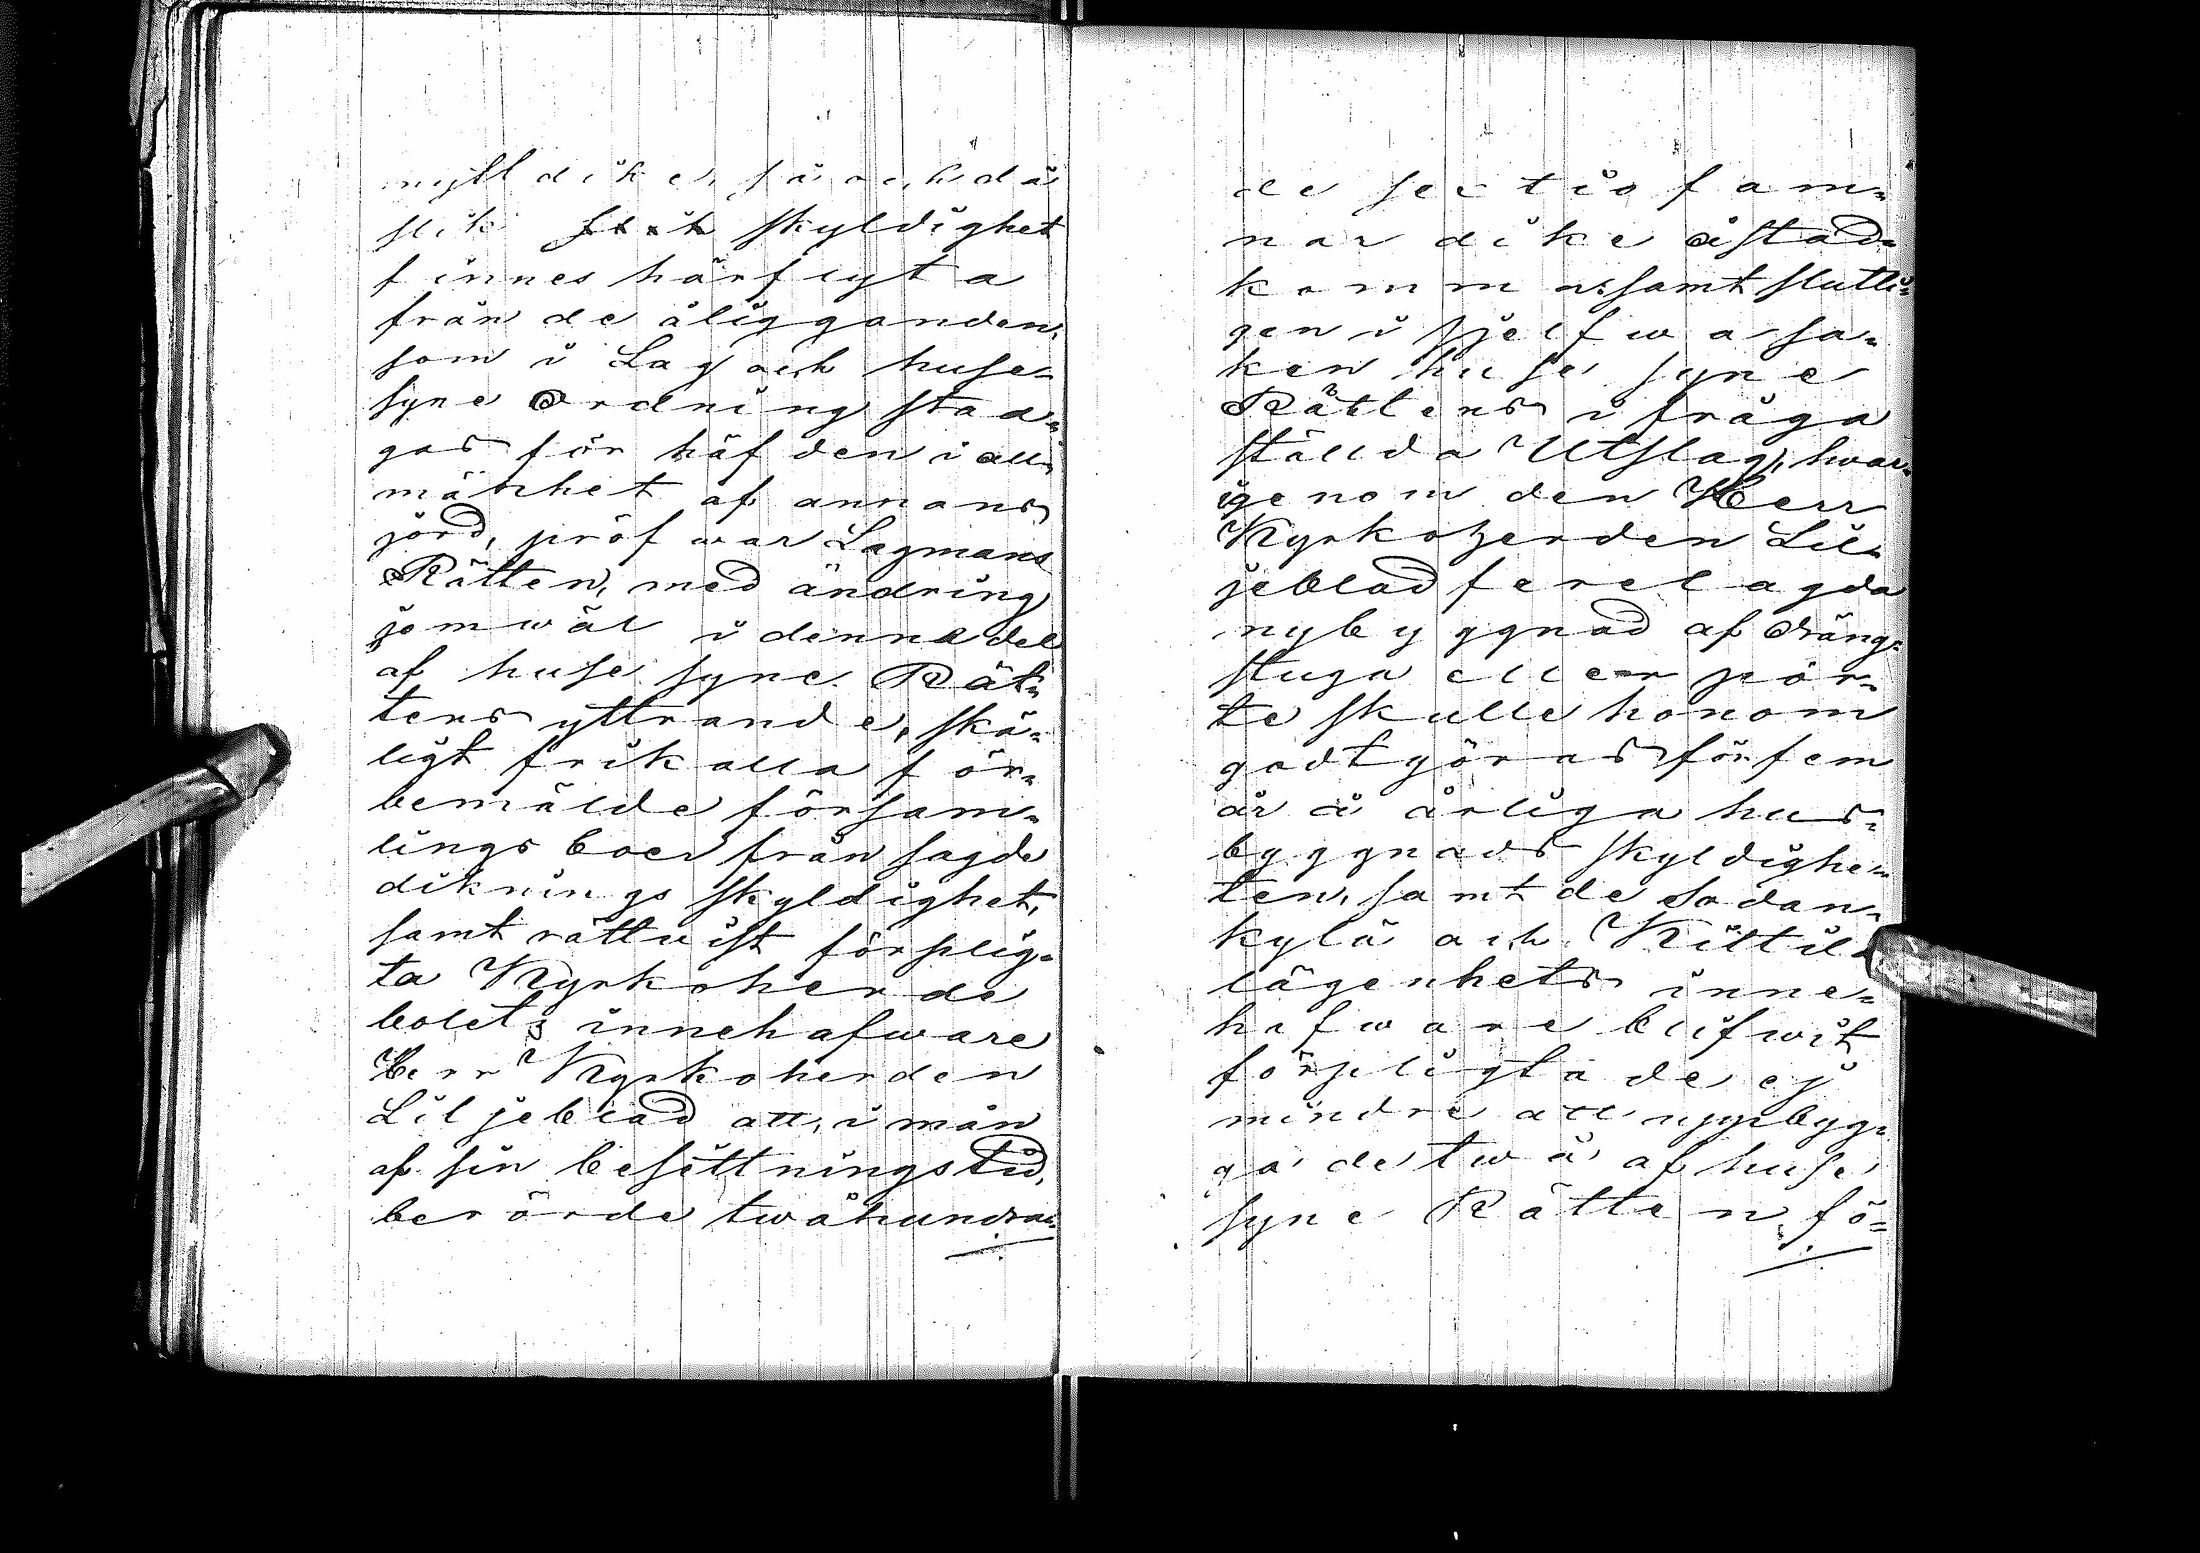 nytt dike, så ock då
slik skyldighet
finnes härflyta
från de åligganden,
som i Lag och huse-
syne Ordning stad-
gas för häfden i all-
mänhet af annans
jord, pröfwar Lagmans
Rätten, med ändring
jemwäl i denna del
af huse syne Rät-
tens yttrande, skä-
ligt frikalla för-
bemälde försam-
lings boer från sagde
diknings skyldighet,
samt rättwist förplig-
ta Kyrkoherde
bolets innehafware
Herr Kyrkoherden
Liljeblad att, i mån
af sin besittningstid,
berörde twåhundra-
de sextio fam-
nar dike åstad-
komma; samt slutli-
gen i sjelfwa sa-
ken huse syne
Rättens i fråga
ställda Utslag, hwar-
igenom den Herr
Kyrkoherden Lil-
jeblad förelagda
nybyggnad af dräng-
stuga eller pör-
te skulle honom
godtgöras för fem
år å årliga hus-
byggnads skyldighe-
ten, samt de Sodan-
kylä och Kittilä
lägenhets inne-
hafware blifwit
förpligtade ej
mindre att uppbyg-
ga de twå af huse
syne Rätten fö-